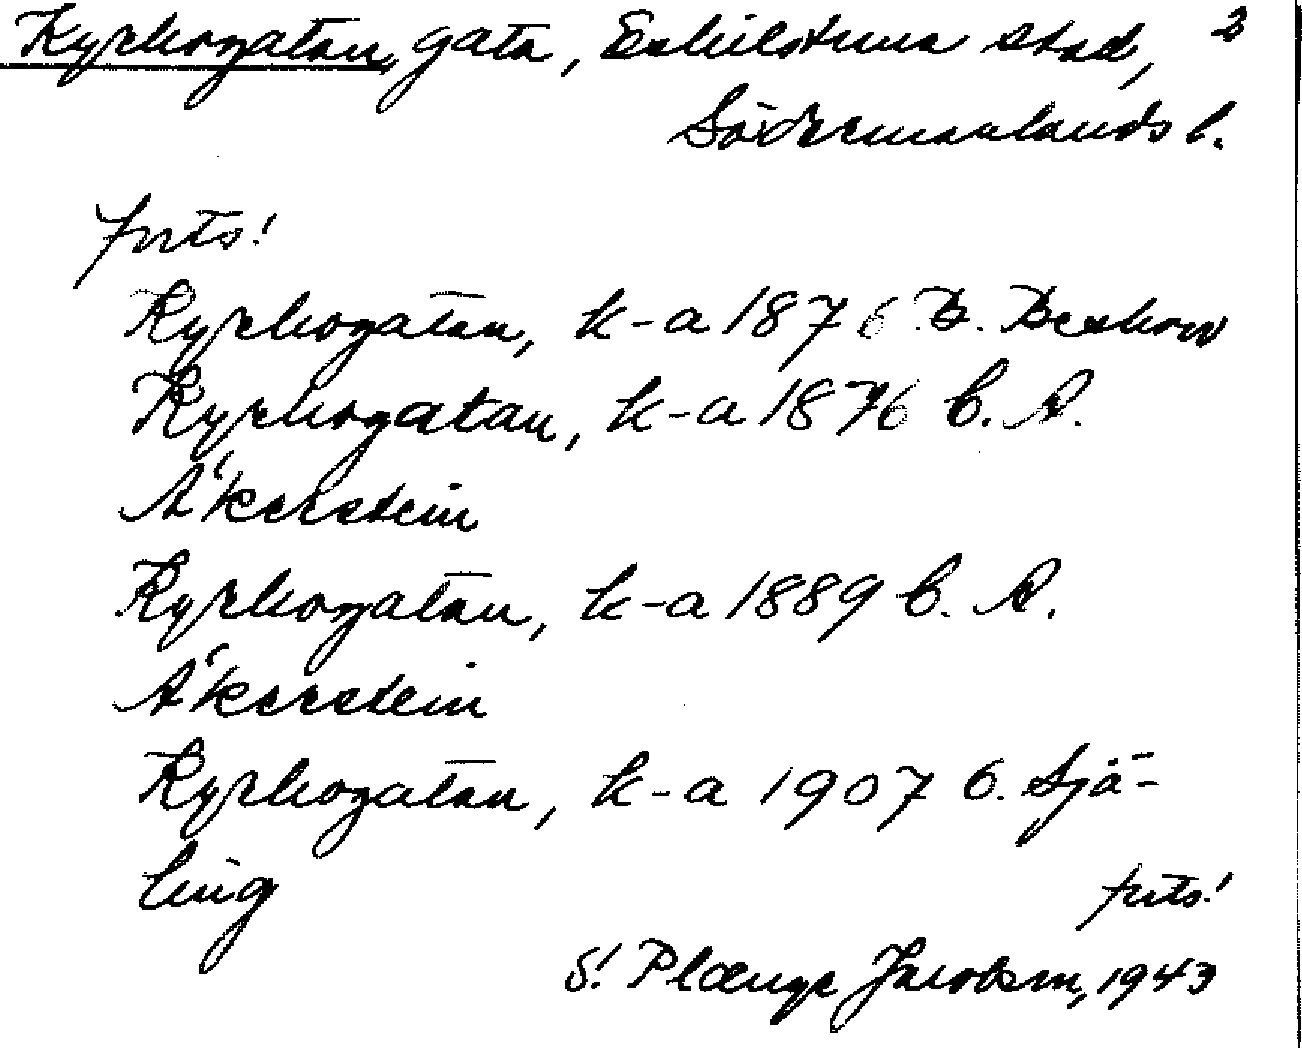 Kyrkogatan, gata, Eskilstuna stad, 3
Södermanlands l.
forts!
Kyrkogatan, k-a 1876 B. Beskow
Kyrkogatan, k-a 1876 C. A.
Åkerstein
Kyrkogatan, k-a 1889 C. A.
Åkerstein
Kyrkogatan, k-a 1907 O. Sjö-
ling
forts!
S. Plænge Jacobson, 1943